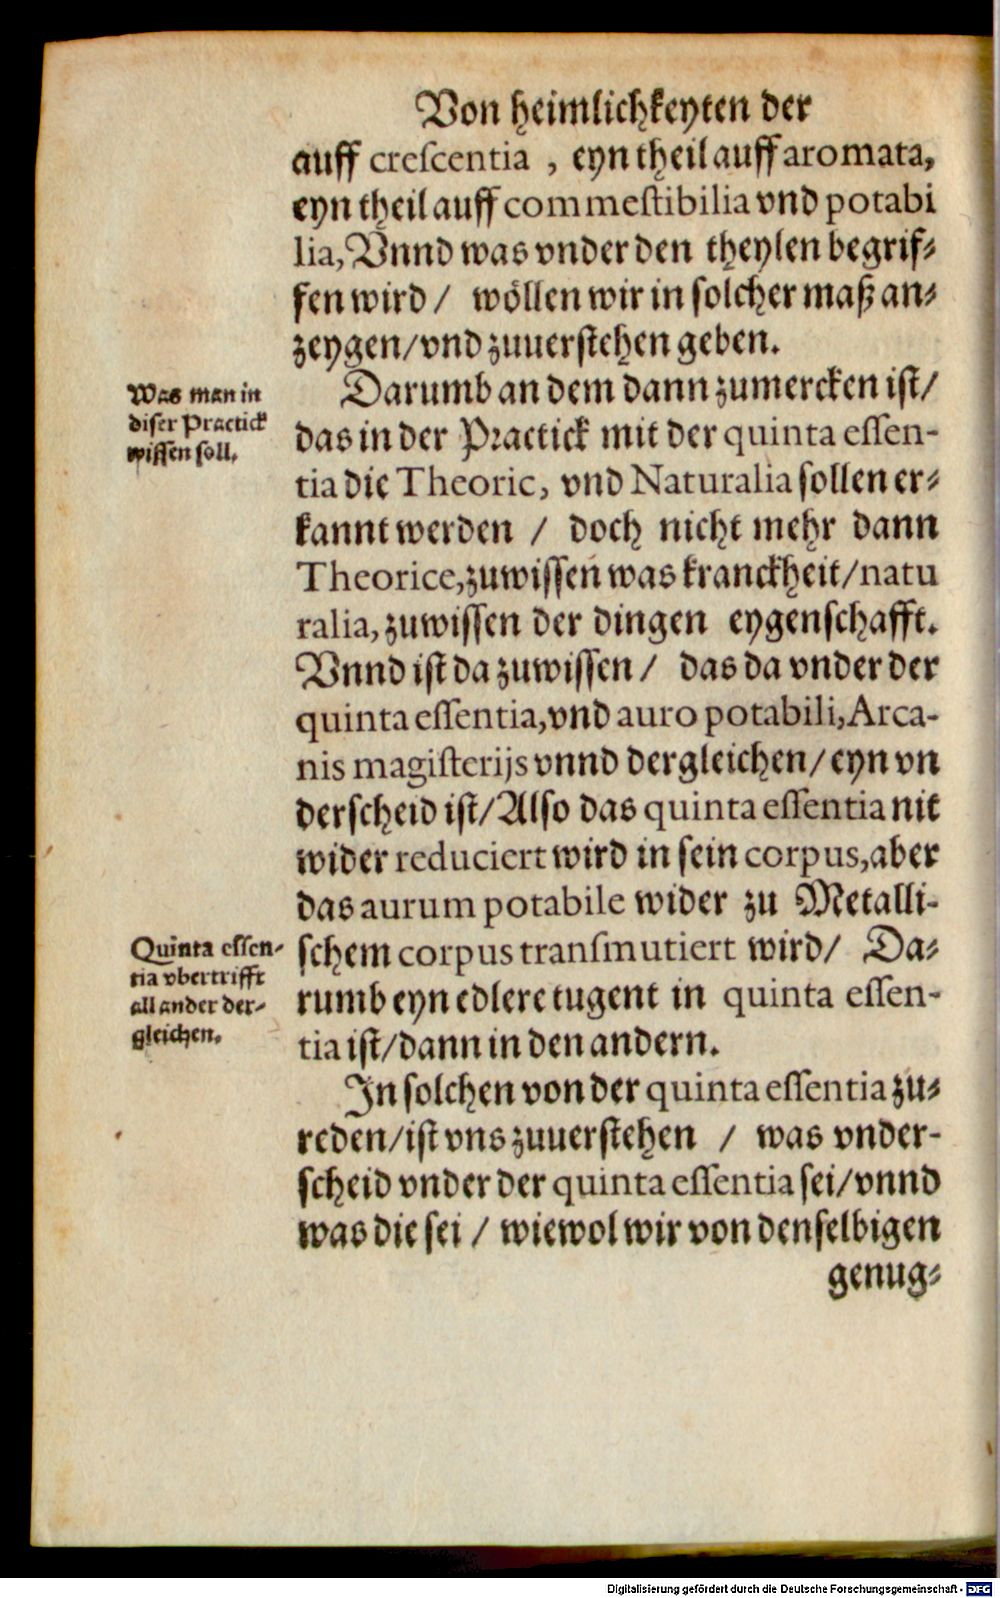 Von heimlichkeyten der
auff crescentia, eyn theil auff aromata,
eyn theil auff commestibilia vnd potabi
lia, Vnnd was vnder den theylen begrif-
fen wird / wöllen wir in solcher maß an-
zeygen/vnd zuuerstehen geben.
Was man in
diser Practick
wissen soll.
Darumb an dem dann zumercken ist/
das in der Practick mit der quinta essen-
tia die Theoric, vnd Naturalia sollen er-
kannt werden / doch nicht mehr dann
Theorice, zuwissen was kranckheit/natu
ralia, zuwissen der dingen eygenschafft.
Vnnd ist da zuwissen / das da vnder der
quinta essentia, vnd auro potabili, Arca-
nis magisterijs vnnd dergleichen/eyn vn
derscheid ist/Also das quinta essentia nit
wider reduciert wird in sein corpus, aber
das aurum potabile wider zu Metalli-
Quinta essen-
tia vbertrifft
all ander der-
gleichen.
schem corpus transmutiert wird/ Da-
rumb eyn edlere tugent in quinta essen-
tia ist/dann in den andern.
In solchen von der quinta essentia zu-
reden/ist vns zuuerstehen / was vnder-
scheid vnder der quinta essentia sei/vnnd
was die sei / wiewol wir von denselbigen
genug-
Digitalisierung gefördert durch die Deutsche Forschungsgemeinschaft - DFG